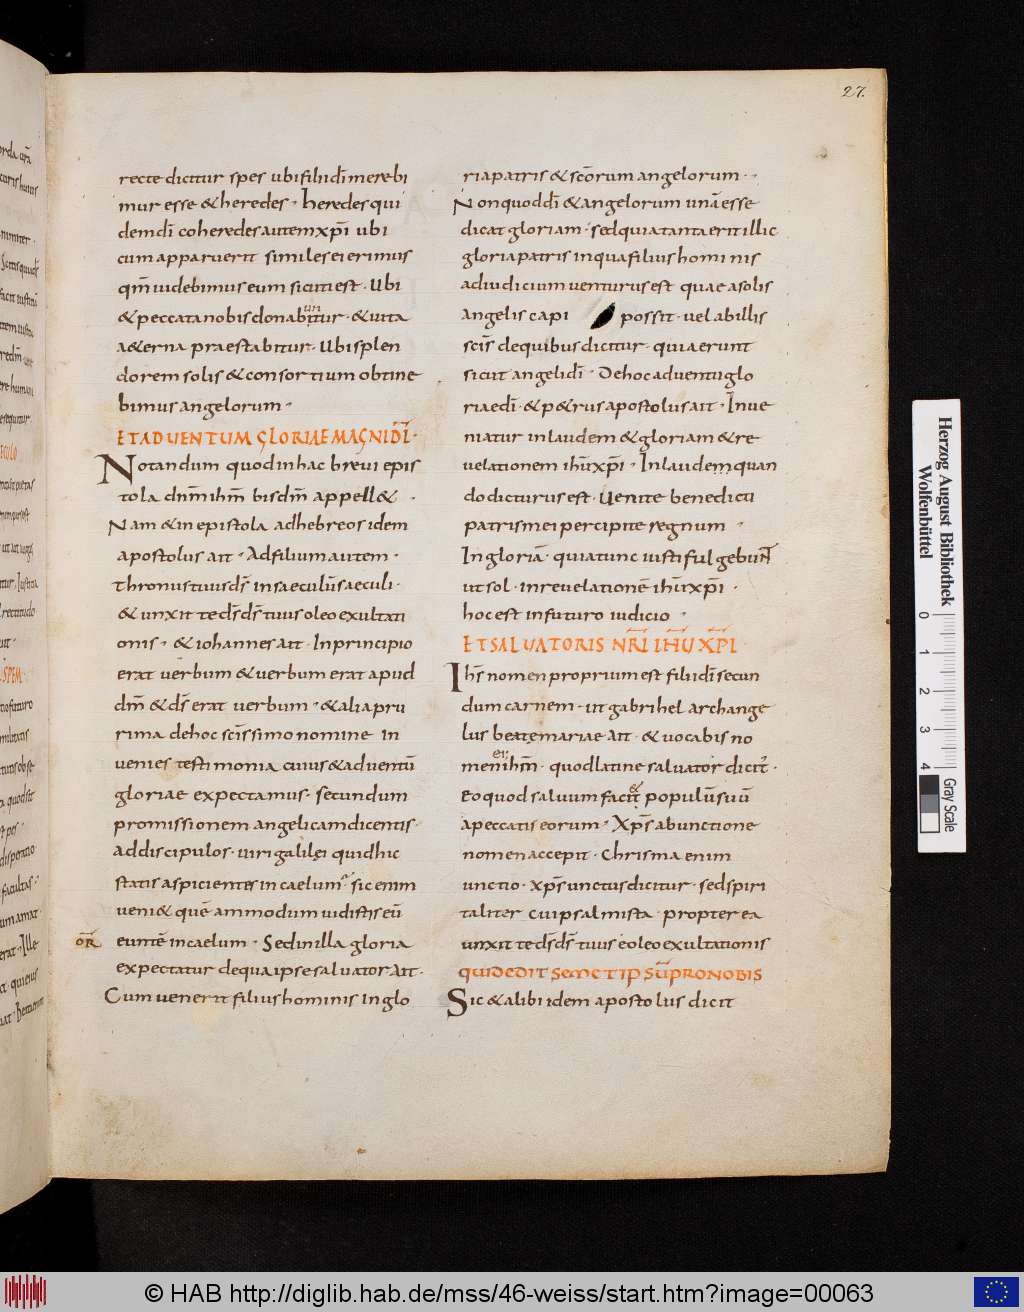 27.
recte dicitur spes ubi filii dī mere bi
mur esse & heredes · heredes qui
dem dī coheredes autem xp̄i ubi
cum apparuerit similes ei erimus
qm̄ uidebimus eum sicuti est · Ubi
& peccata nobis donabitur · & uita
a&erna praestabitur · Ubi splen
dorem solis & consortium obtine
bimus angelorum ·
ET ADUENTUM GLORIAE MAGNI DĪ ·
Notandum quod in hac breui epis
tola dnm̄ ihm̄ bis dm̄ appell& ·
Nam & in epistola ad hebreos idem
apostolus ait · Ad filium autem ·
thronus tuus ds̄ in saeculū saeculi ·
& unxit te ds̄ ds̄ tuus oleo exultati
onis · & iohannes ait · In principio
erat uerbum & uerbum erat apud
dm̄ & ds̄ erat uerbum · & alia plu
rima de hoc scīssimo nomine in
uenies testimonia cuius & aduentū
gloriae expectamus · secundum
promissionem angelicam dicentis ·
Ad discipulos · uiri galilei quid hic
statis aspicientes in caelum · sic enim
ueni& quē ammodum uidistis eū
euntē in caelum · Sed in illa gloria
expectatur de qua ipse saluator ait ·
Cum uenerit filius hominis in glo
ria patris & scōrum angelorum ·
Non quod dī & angelorum unā esse
dicat gloriam · sed quia tanta erit illic
gloria patris in qua filius homi nis
ad iudicium uenturus est quae a solis
angelis capi possit · uel ab illis
scīs de quibus dicitur · quia erunt
sicut angeli dī · De hoc aduentu glo
riae dī · & p&rus apostolus ait · Inue
niatur in laudem & gloriam & re
uelationem ihū xp̄i · In laudem quan
do dicturus est · Uenite benedicti
patris mei percipite regnum ·
In gloriā · quia tunc iusti fulgebunt
ut sol · in reuelationē ihū xp̄i ·
hoc est in futuro iudicio ·
ET SALUATORIS NR̄I IHŪ XP̄I
Ihs̄ nomen proprium est filii dī secun
dum carnem · ut gabrihel archange
lus beatę mariae ait · & uocabis no
men ei ihm̄ · quod latine saluator dicit̄ ·
Eo quod saluum faci&t populū suū
a peccatis eorum · Xp̄s ab unctione
nomen accepit · Chrisma enim
unctio · xp̄s unctus dicitur · sed spiri
taliter cui psalmista · propter ea
unxit te ds̄ ds̄ tuus eoleo exultationis
QUI DEDIT SEMETIPSŪ PRO NOBIS
Sic & alibi idem apostolus dicit
Herzog August Bibliothek
Wolfenbüttel
0 1 2 3 4
Gray Scale
© HAB http://diglib.hab.de/mss/46-weiss/start.htm?image=00063